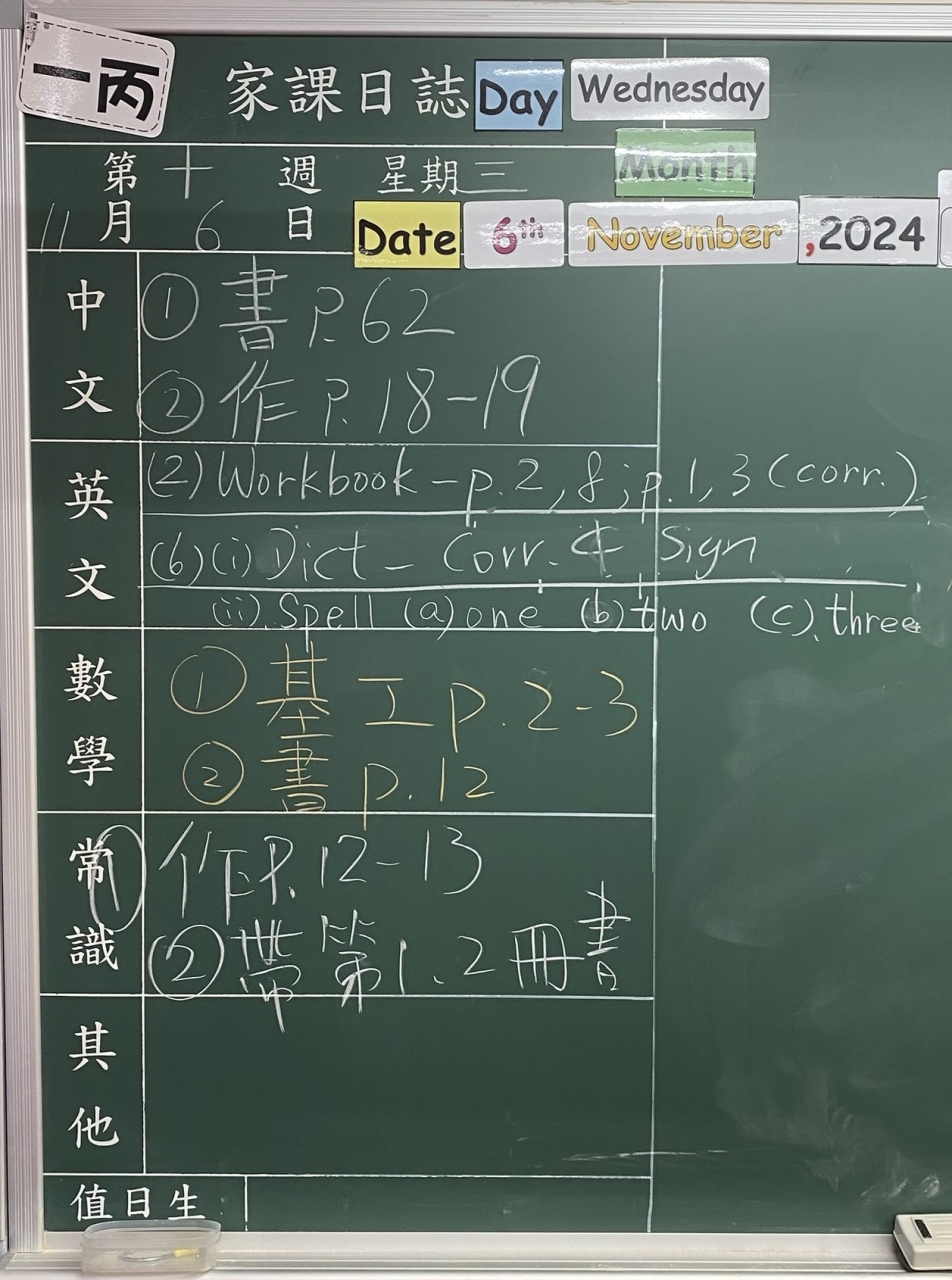 一丙
家課日誌 Day Wednesday
Month
第十週 星期三
11月6日 Date 6th November ,2024
中文
① 書 P.62
② 作 P.18-19
英文
(2) Workbook - p.2, 8; p.1, 3 (corr.)
(6)(i) Dict - Corr. & Sign
(ii). Spell (a) one (b) two (c). three
數學
① 基工 p.2-3
② 書 p.12
常識
① 作P.12-13
② 帶第1.2冊書
其他
值日生